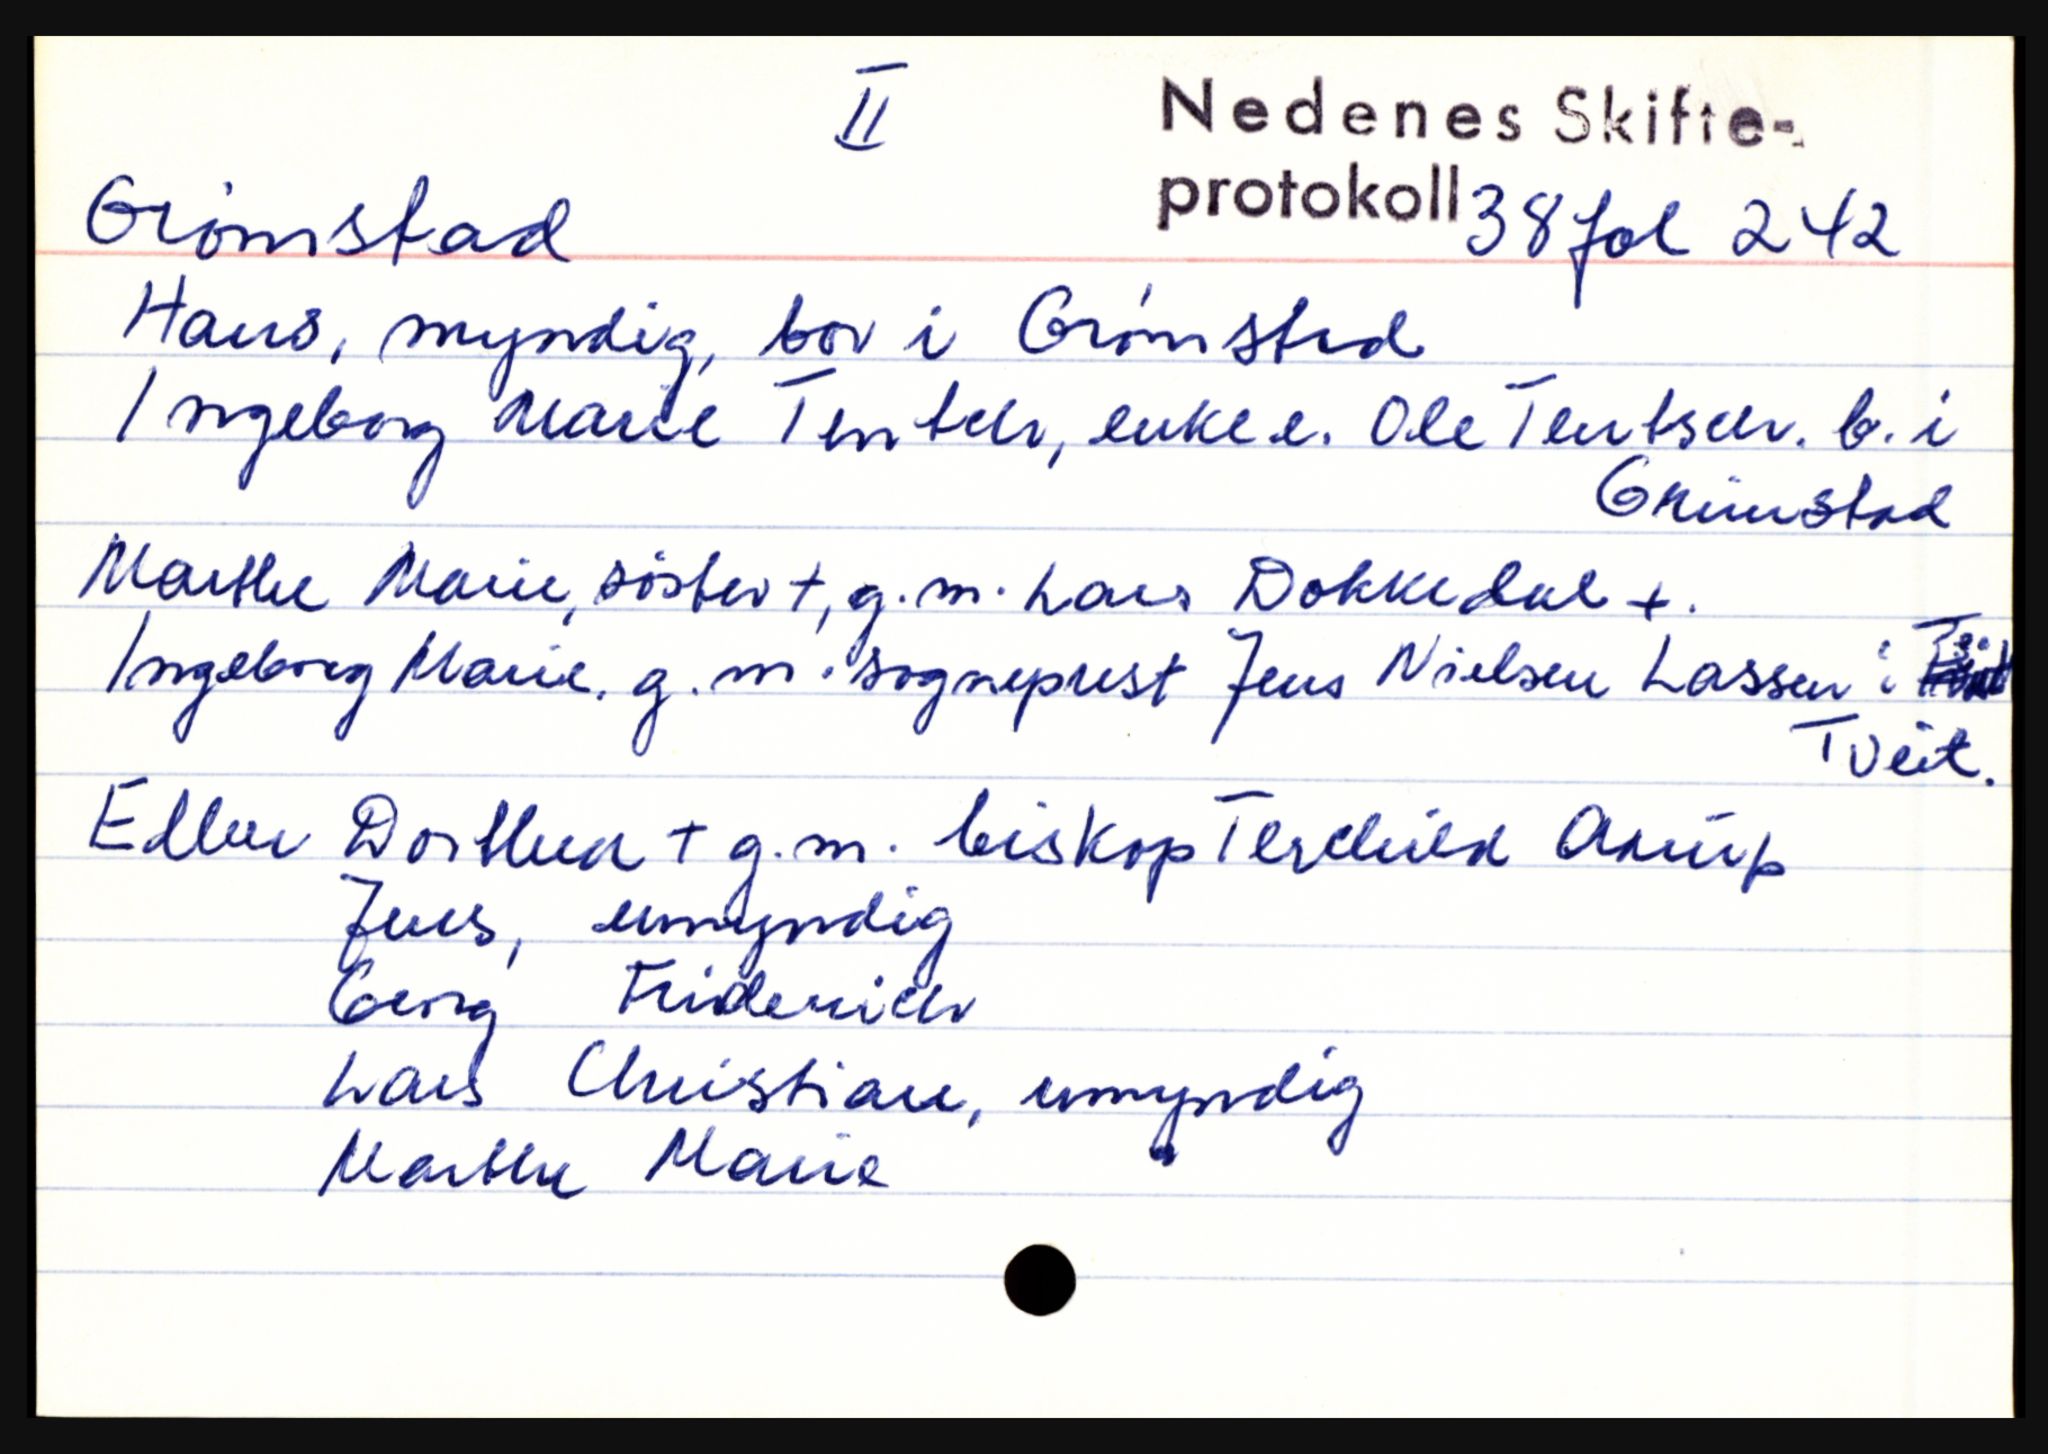 II
Nedenes Skifte-
protokoll 38 fol 242
Grimstad
Hans, myndig, bor i Grimstad
Ingeborg Marie Tentch, enke e. Ole Tentsch. b. i
Grimstad
Marthe Marie, söster +, g. m. Lars Dokkedal +.
Ingeborg Marie. g. m. sogneprest Jens Nielsen Lassen i
Tveit.
Edler Dorthea + g. m. biskop Terchild Arup
Jens, umyndig
Georg Friderich
Lars Christian, umyndig
Marthe Marie "